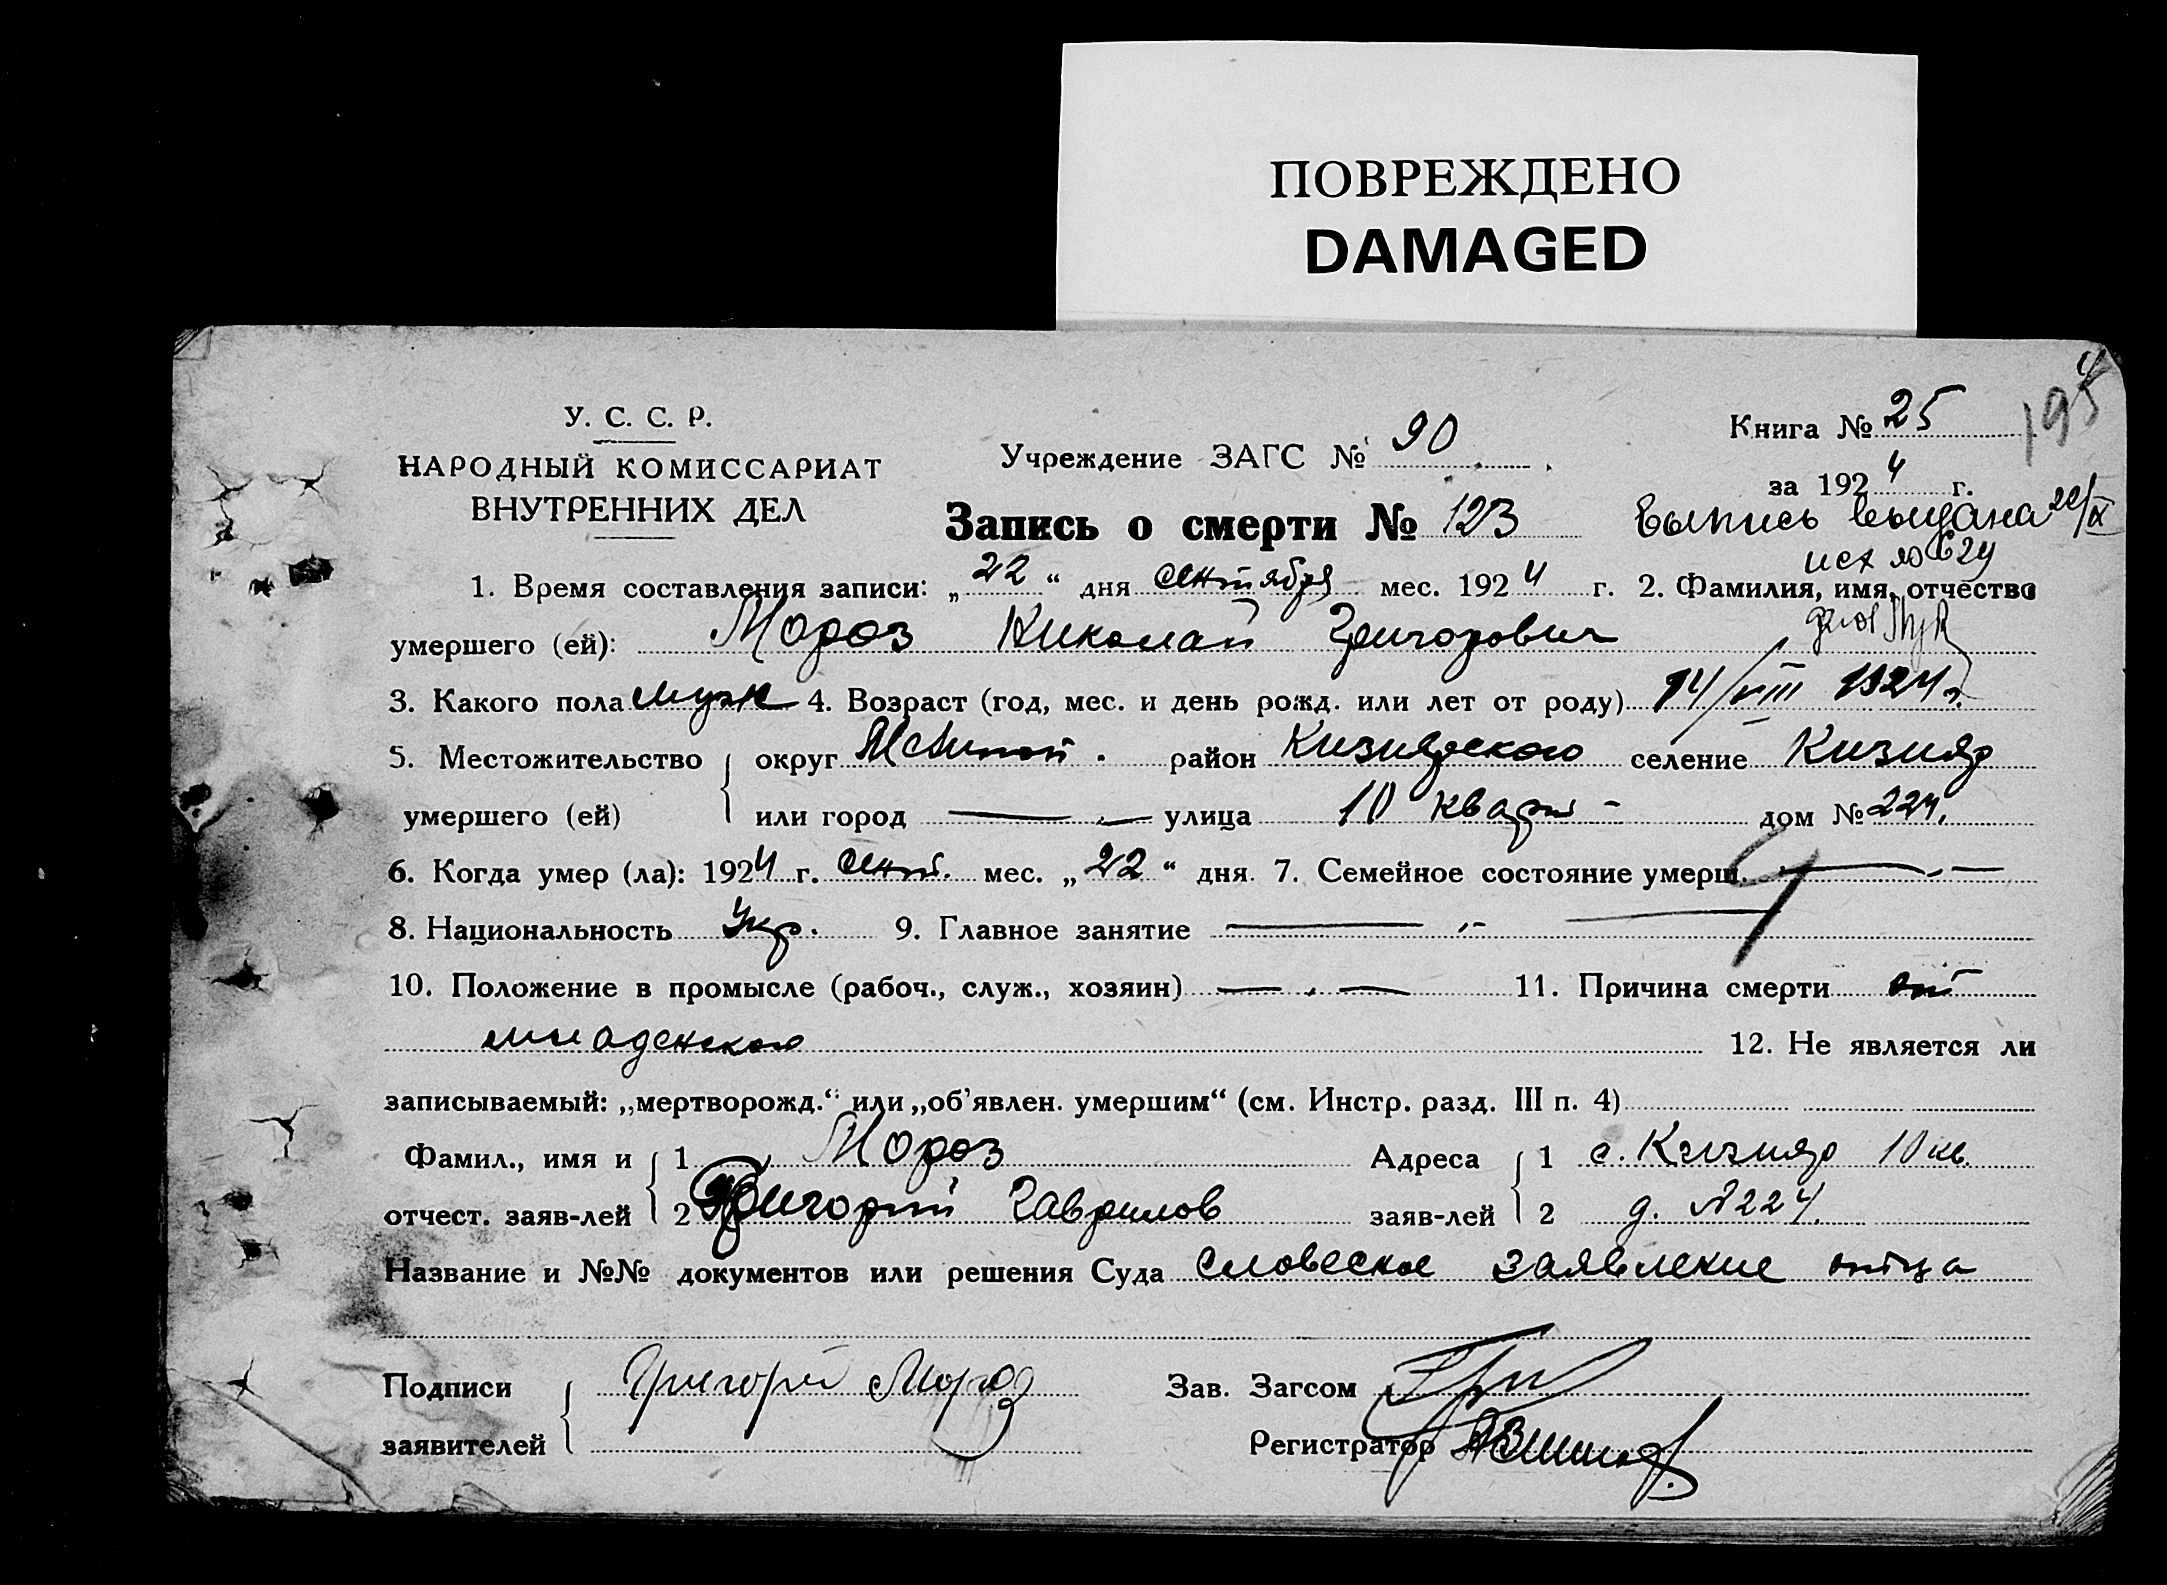 ПОВРЕЖДЕНО
DAMAGED
У. С. С. Р.
НАРОДНЫЙ КОМИССАРИАТ
ВНУТРЕННИХ ДЕЛ
Учреждение ЗАГС № 90
Книга № 25
195
за 1924 г.
Запись о смерти № 123
Выпись выдана 22/IX
исх № 624
1. Время составления записи: „22“ дня сентября мес. 1924 г. 2. Фамилия, имя, отчество
умершего (ей): Мороз Николай Григорович
3. Какого пола муж 4. Возраст (год, мес. и день рожд. или лет от роду) 14/VIII 1924 г.
5. Местожительство округ район Кизиярского селение Кизияр
умершего (ей) или город — „ — улица 10 кварт — дом № 224.
6. Когда умер (ла): 1924 г. сент. мес. „22“ дня. 7. Семейное состояние умерш. — „ —
8. Национальность Укр. 9. Главное занятие — „ —
10. Положение в промысле (рабоч., служ., хозяин) — „ — 11. Причина смерти от
младенского 12. Не является ли
записываемый: „мертворожд.“ или „об’явлен. умершим“ (см. Инстр. разд. III п. 4)
Фамил., имя и 1 Мороз Адреса 1 с. Кизияр 10 кв.
отчест. заяв-лей 2 Григорий Гаврилов заяв-лей 2 д. № 224.
Название и №№ документов или решения Суда словеское заявление отца
Подписи Григорий Мороз Зав. Загсом
заявителей Регистратор